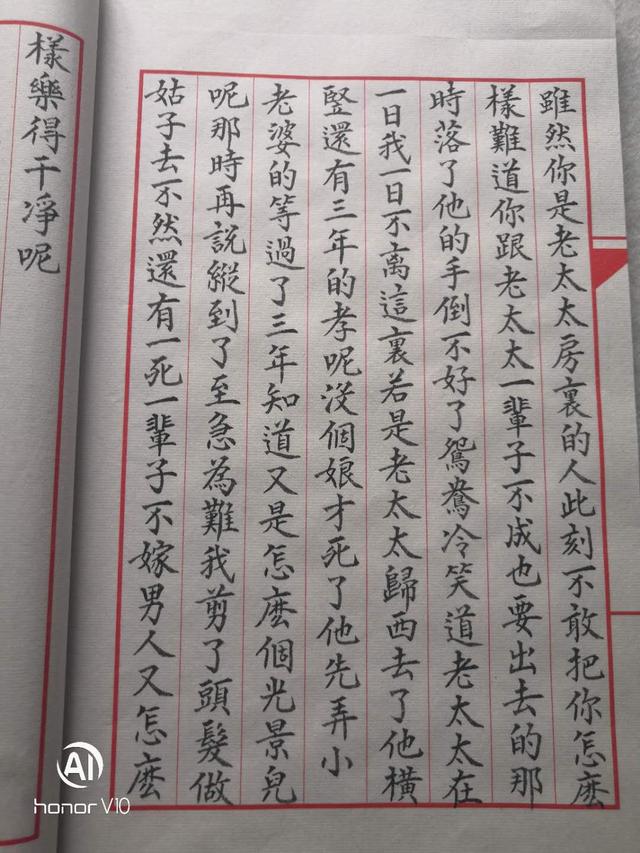 雖然你是老太太房裏的人此刻不敢把你怎麽
樣難道你跟老太太一輩子不成也要出去的那
時落了他的手倒不好了鴛鴦冷笑道老太太在
一日我一日不離這裏若是老太太歸西去了他橫
竪還有三年的孝呢沒個娘才死了他先弄小
老婆的等過了三年知道又是怎麽個光景兒
呢那時再說縱到了至急為難我剪了頭髮做
姑子去不然還有一死一輩子不嫁男人又怎麽
樣樂得干凈呢
AI
honor V10